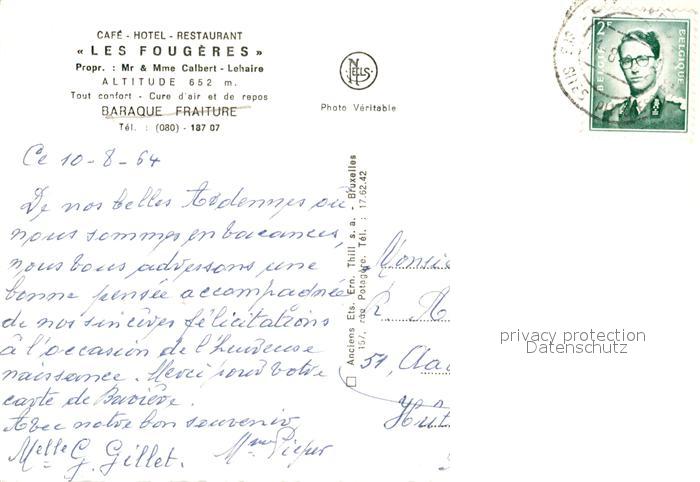 CAFÉ - HOTEL - RESTAURANT
« LES FOUGÈRES »
Propr. : Mr & Mme Calbert - Lehaire
ALTITUDE 652 m.
Tout confort - Cure d'air et de repos
BARAQUE FRAITURE
Tél. : (080) - 187 07
NELS
Photo Véritable
2F
BELGIE
BELGIQUE
Ce 10-8-64
De nos belles Ardennes où
nous sommes en vacances,
nous vous adressons une
bonne pensée accompagnée
de nos sincères félicitations
à l'occasion de l'heureuse
naissance. Merci pour votre
carte de Bavière.
Avec notre bon souvenir,
Melle G. Gillet. Mme Pieper
Anciens Ets. Ern. Thill s. a. - Bruxelles
167, rue Potagère. Tél. : 17.62.42
51,
privacy protection
Datenschutz